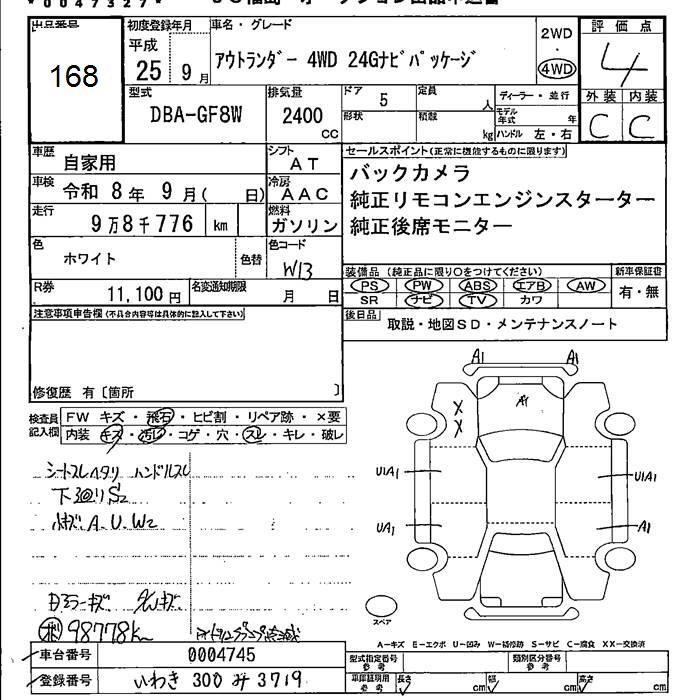 0047327
出品番号
168
初度登録年月
平成
25 9 月
車名・グレード
アウトランダー 4WD 24Gナビパッケージ
2WD
・
4WD
評価点
4
外装 内装
C C
型式
DBA-GF8W
排気量
2400
CC
ドア 5
定員 人
形状
積載 kg
ディーラー・並行
モデル年式 年
ハンドル 左・右
車歴
自家用
シフト
AT
車検
令和 8 年 9 月( 日)
冷房
AAC
走行
9 万 8 千 776 km
燃料
ガソリン
色
ホワイト
色替
色コード
W13
R券
11,100 円
名変通知期限
月 日
セールスポイント(正常に機能するものに限ります)
バックカメラ
純正リモコンエンジンスターター
純正後席モニター
装備品(純正品に限り○をつけてください)
PS PW ABS エアB AW
SR ナビ TV カワ
新車保証書
有・無
後日品
取説・地図SD・メンテナンスノート
注意事項申告欄(不具合内容等は具体的に記入して下さい)
修復歴 有〔箇所 〕
検査員記入欄
FW キズ・飛石・ヒビ割・リペア跡・×要
内装 キズ・汚れ・コゲ・穴・スレ・キレ・破レ
シートスレヘタリ ハンドルスレ
下廻りS2
A.U.W2
98778k
車台番号 0004745
登録番号 いわき 300 み 3719
A1 A1
A1
X
X
U1A1
U1A1
UA1
A1
スペア
A-キズ E-エクボ U-凹み W-補修跡 S-サビ C-腐食 XX-交換済
型式指定番号
参考
類別区分番号
参考
車庫証明用
参考
長さ cm 幅 cm 高さ cm